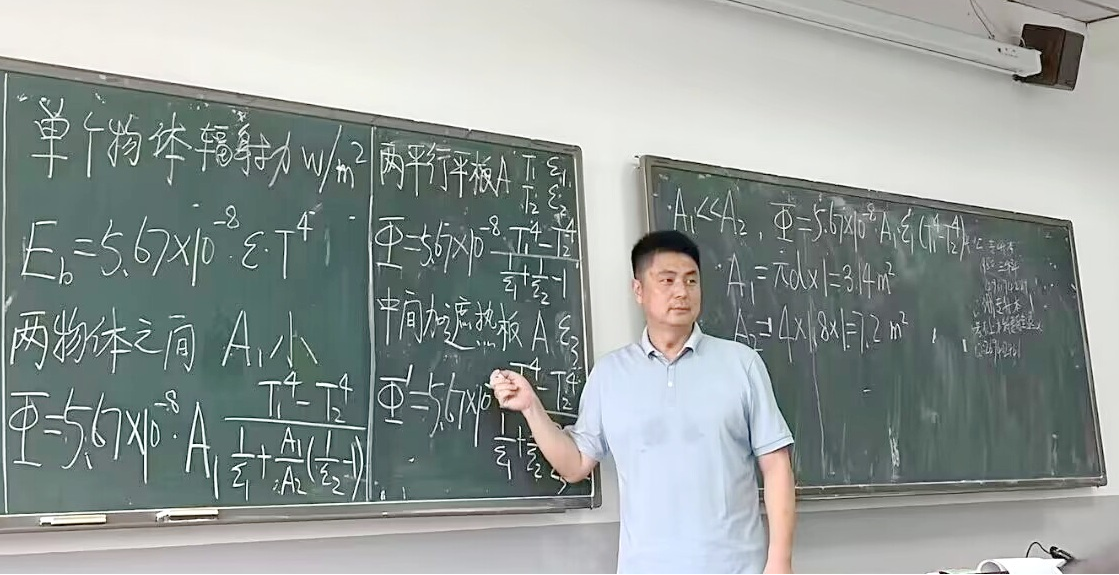 单个物体辐射力 W/m²
E_b=5.67×10⁻⁸·ε·T⁴
两物体之间 A₁小
Φ=5.67×10⁻⁸·A₁ (T₁⁴-T₂⁴)/(1/ε₁+A₁/A₂(1/ε₂-1))
两平行平板A T₁ ε₁
T₂ ε₂
Φ=5.67×10⁻⁸ (T₁⁴-T₂⁴)/(1/ε₁+1/ε₂-1)
中间加遮热板 A ε₃
Φ'=5.67×10 T₂⁴ 1/ε₁+ ε₂
A₁<<A₂, Φ=5.67×10⁻⁸A₁ε₁(T₁⁴-T₂⁴)
A₁=πd×1=3.14m²
A₂=4×1.8×1=7.2 m²